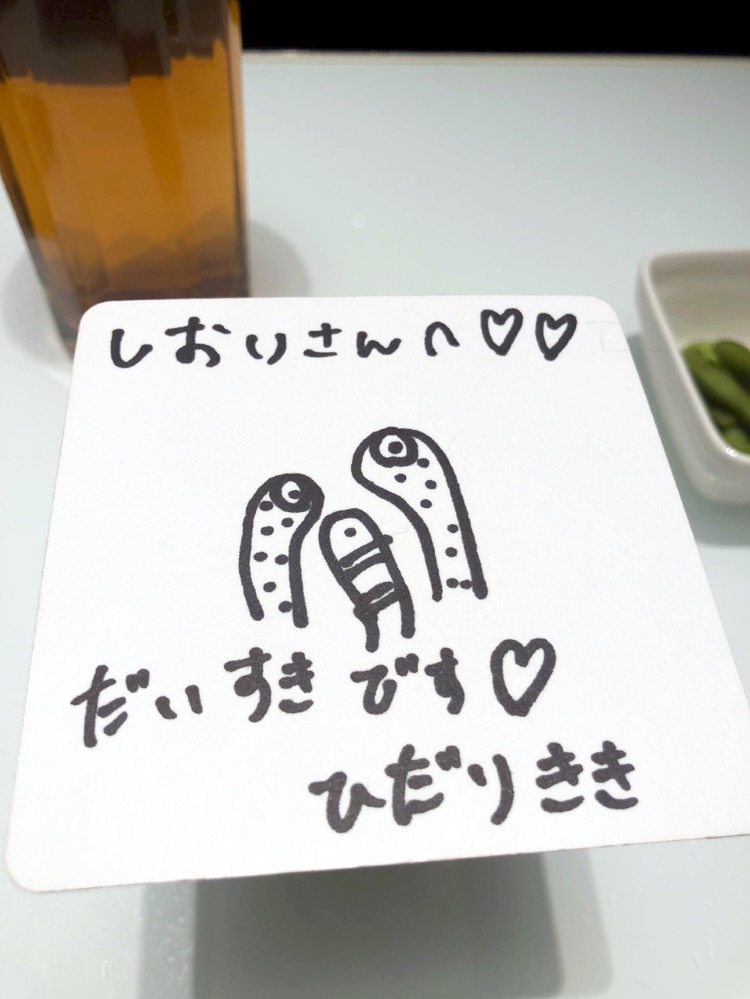 しおりさんへ♡♡
だいすきです♡
ひだりきき